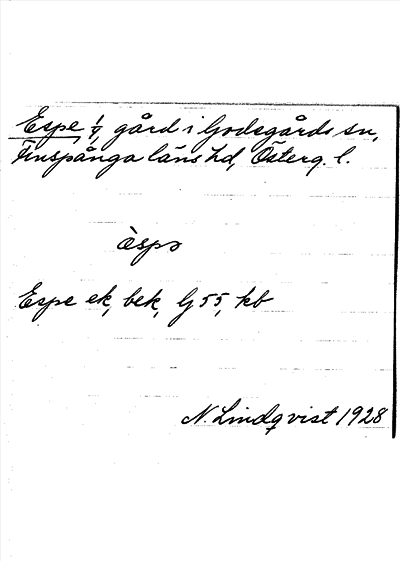 Espe 1/1, gård i Godegårds sn,
Finspånga läns hd, Österg. l.
èspə
Espe ek, bek, G 55, kb
N. Lindqvist 1928